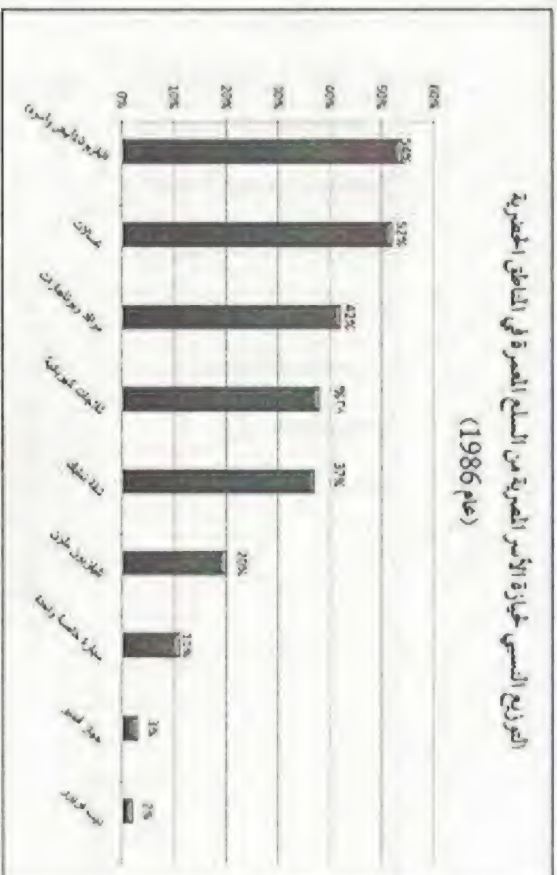 التوزيع النسبي لحيازة الأسر المصرية من السلع المعمرة في المناطق الحضرية
(عام 1986)
60%
50%
40%
30%
20%
10%
0%
54%
52%
42%
37%
20%
11%
3%
2%
تليفزيون (أبيض وأسود)
غسالات
ثلاجات كهربائية
تليفزيون ملون
سيارة خاصة واحدة